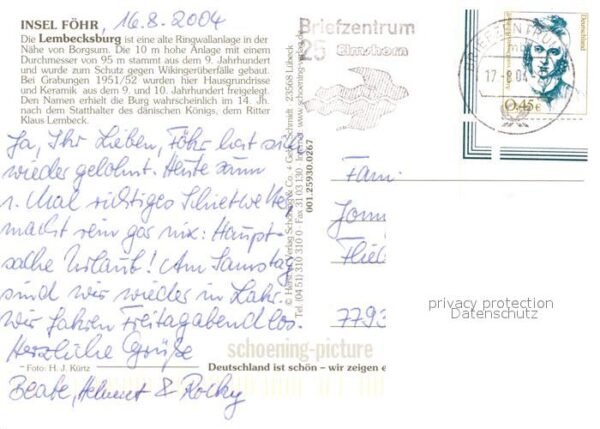 INSEL FÖHR, 16.8.2004
Die Lembecksburg ist eine alte Ringwallanlage in der
Nähe von Borgsum. Die 10 m hohe Anlage mit einem
Durchmesser von 95 m stammt aus dem 9. Jahrhundert
und wurde zum Schutz gegen Wikingerüberfälle gebaut.
Bei Grabungen 1951/52 wurden hier Hausgrundrisse
und Keramik aus dem 9. und 10. Jahrhundert freigelegt.
Den Namen erhielt die Burg wahrscheinlich im 14. Jh.
nach dem Statthalter des dänischen Königs, dem Ritter
Klaus Lembeck.
Ja, Ihr Lieben, Föhr hat sich
wieder gelohnt. Heute zum
1. Mal richtiges Schietwetter
macht rein gar nix: Haupt-
sache Urlaub! Am Samstag
sind wir wieder in Lahr.
Wir fahren Freitagabend los.
Herzliche Grüße
Foto: H. J. Kürtz
Beate, Helmut & Rocky
schoening-picture
Deutschland ist schön – wir zeigen e
© Hans Verlag Schöning & Co. + Gebr. Schmidt · 23568 Lübeck
Tel. (04 51) 310 310 0 · Fax 31 03 130 · Internet: www.schoening-verlag.de
001.25930.0267
Briefzentrum
25 Elmshorn
BRIEFZENTRUM
17-8.04
Deutschland
0,45 €
Fam.
7793
privacy protection
Datenschutz